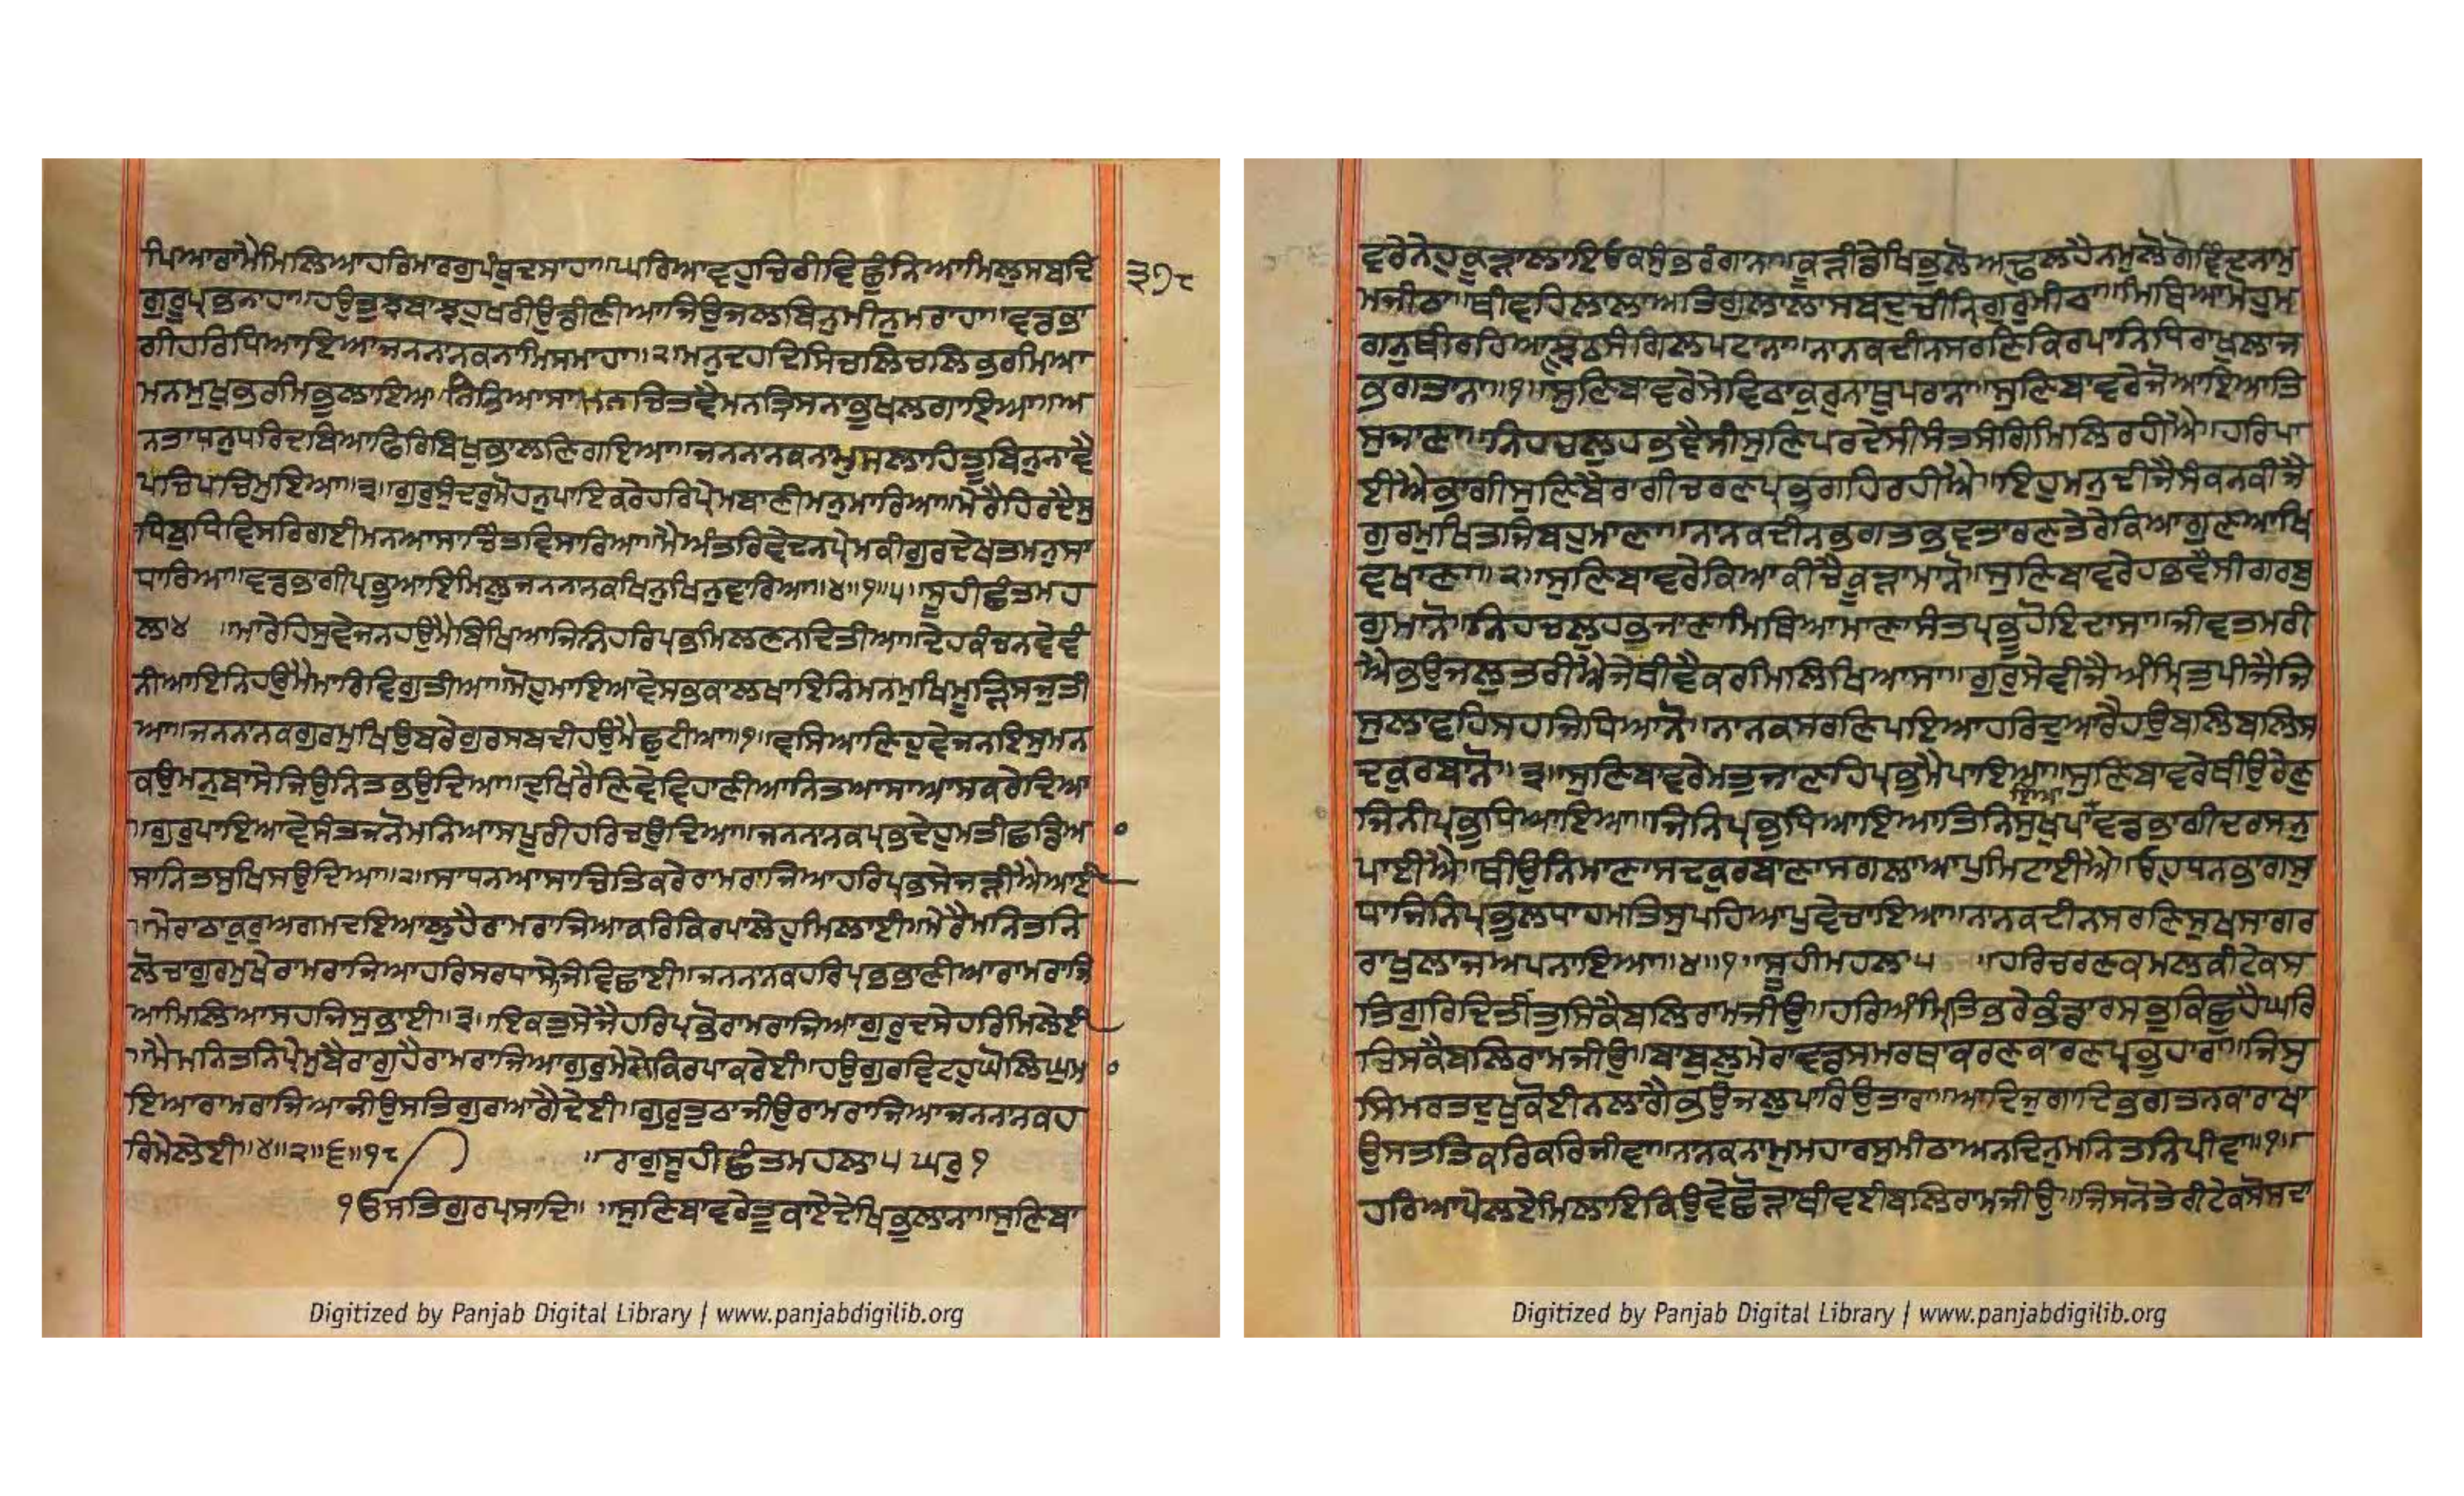 ਪਿਆਰਾਮੈਮਿਲਿਆਹਰਿਮਾਰਗੁਪੰਥੁਦਸਾਹਾ॥ਘਰਿਆਵਹੁਚਿਰੀਵਿਛੁੰਨਿਆਮਿਲੁਸਬਦਿ
੩੭੮
ਗੁਰੂਪ੍ਰਭਨਾਹਾ॥ਹਉਤੁਝਬਾਝਹੁਖਰੀਉਡੀਣੀਆਜਿਉਜਲਬਿਨੁਮੀਨੁਮਰਾਹਾ॥ਵਡਭਾ
ਗੀਹਰਿਧਿਆਇਆਜਨਨਾਨਕਨਾਮਿਸਮਾਹਾ॥੨॥ਮਨੁਦਹਦਿਸਿਚਲਿਚਲਿਭਰਮਿਆ
ਮਨਮੁਖੁਭਰਮਿਭੁਲਾਇਆ॥ਨਿਤਿਆਸਾਮਨਿਚਿਤਵੈਮਨਤ੍ਰਿਸਨਾਭੁਖਲਗਾਇਆ॥ਅ
ਨਤਾਧਨੁਧਰਿਦਬਿਆਫਿਰਿਬਿਖੁਭਾਲਣਿਗਇਆ॥ਜਨਨਾਨਕਨਾਮੁਸਲਾਹਿਤੂਬਿਨੁਨਾਵੈ
ਪਚਿਪਚਿਮੁਇਆ॥੩॥ਗੁਰੁਸੁੰਦਰੁਮੋਹਨੁਪਾਇਕਰੇਹਰਿਪ੍ਰੇਮਬਾਣੀਮਨੁਮਾਰਿਆ॥ਮੇਰੈਹਿਰਦੈਸੁ
ਧਿਬੁਧਿਵਿਸਰਿਗਈਮਨਆਸਾਚਿੰਤਵਿਸਾਰਿਆ॥ਮੈਅੰਤਰਿਵੇਦਨਪ੍ਰੇਮਕੀਗੁਰਦੇਖਤਮਨੁਸਾ
ਧਾਰਿਆ॥ਵਡਭਾਗੀਪ੍ਰਭਆਇਮਿਲੁਜਨਨਾਨਕਖਿਨੁਖਿਨੁਵਾਰਿਆ॥੪॥੧॥੫॥ਸੂਹੀਛੰਤਮਹ
ਲਾ੪ ॥ਮਾਰੇਹਿਸੁਵੇਜਨਹਉਮੈਬਿਖਿਆਜਿਨਿਹਰਿਪ੍ਰਭਮਿਲਣਨਦਿਤੀਆ॥ਦੇਹਕੰਚਨਵੇਵੰ
ਨੀਆਇਨਿਹਉਮੈਮਾਰਿਵਿਗੁਤੀਆ॥ਮੋਹੁਮਾਇਆਵੇਸਭਕਾਲਖਾਇਨਿਮਨਮੁਖਿਮੂੜਿਸਜੁਤੀ
ਆ॥ਜਨਨਾਨਕਗੁਰਮੁਖਿਉਬਰੇਗੁਰਸਬਦੀਹਉਮੈਛੁਟੀਆ॥੧॥ਵਸਿਆਣਿਹੁਵੇਜਨਇਸੁਮਨ
ਕਉਮਨੁਬਾਸੇਜਿਉਨਿਤਭਉਦਿਆ॥ਦੁਖਿਰੈਣਿਵੇਵਿਹਾਣੀਆਨਿਤਆਸਾਆਸਕਰੇਦਿਆ
॥ਗੁਰੁਪਾਇਆਵੇਸੰਤਜਨੋਮਨਿਆਸਪੂਰੀਹਰਿਚਉਦਿਆ॥ਜਨਨਾਨਕਪ੍ਰਭਦੇਹੁਮਤੀਛਡਿਆ
ਸਾਨਿਤਸੁਖਿਸਉਦਿਆ॥੨॥ਸਾਧਨਆਸਾਚਿਤਿਕਰੇਰਾਮਰਾਜਿਆਹਰਿਪ੍ਰਭਸੇਜੜੀਐਆਈ
॥ਮੇਰਾਠਾਕੁਰੁਅਗਮਦਇਆਲੁਹੈਰਾਮਰਾਜਿਆਕਰਿਕਿਰਪਾਲੇਹੁਮਿਲਾਈ॥ਮੇਰੈਮਨਿਤਨਿ
ਲੋਚਾਗੁਰਮੁਖੇਰਾਮਰਾਜਿਆਹਰਿਸਰਧਾਸੇਜਵਿਛਾਈ॥ਜਨਨਾਨਕਹਰਿਪ੍ਰਭਭਾਣੀਆਰਾਮਰਾਜਿ
ਆਮਿਲਿਆਸਹਜਿਸੁਭਾਈ॥੩॥ਇਕਤੁਸੇਜੈਹਰਿਪ੍ਰਭੋਰਾਮਰਾਜਿਆਗੁਰੁਦਸੇਹਰਿਮੇਲੇਈ
॥ਮੈਮਨਿਤਨਿਪ੍ਰੇਮੁਬੈਰਾਗੁਹੈਰਾਮਰਾਜਿਆਗੁਰੁਮੇਲੇਕਿਰਪਾਕਰੇਈ॥ਹਉਗੁਰਵਿਟਹੁਘੋਲਿਘੁਮਾ
ਇਆਰਾਮਰਾਜਿਆਜੀਉਸਤਿਗੁਰਆਗੈਦੇਈ॥ਗੁਰੁਤੁਠਾਜੀਉਰਾਮਰਾਜਿਆਜਨਨਾਨਕਹ
ਰਿਮੇਲੇਈ॥੪॥੨॥੬॥੧੮ ॥ਰਾਗੁਸੂਹੀਛੰਤਮਹਲਾ੫ ਘਰੁ੧
੧ਓਸਤਿਗੁਰਪ੍ਰਸਾਦਿ॥ ॥ਸੁਣਿਬਾਵਰੇਤੂਕਾਏਦੇਖਿਭੁਲਾਨਾ॥ਸੁਣਿਬਾ
Digitized by Panjab Digital Library | www.panjabdigilib.org
ਵਰੇਨੇਹੁਕੂੜਾਲਾਇਓਕਸੁੰਭਰੰਗਾਨਾ॥ਕੂੜੀਡੇਖਿਭੁਲੋਅਢੁਲਹੈਨਮੁਲੋਗੋਵਿੰਦਨਾਮੁ
ਮਜੀਠਾ॥ਥੀਵਹਿਲਾਲਾਅਤਿਗੁਲਾਲਾਸਬਦੁਚੀਨਿਗੁਰੁਮੀਠਾ॥ਮਿਥਿਆਮੋਹੁਮ
ਗਨੁਥੀਰਹਿਆਝੂਠਸੰਗਿਲਪਟਾਨਾ॥ਨਾਨਕਦੀਨਸਰਣਿਕਿਰਪਾਨਿਧਿਰਾਖੁਲਾਜ
ਭਗਤਾਨਾ॥੧॥ਸੁਣਿਬਾਵਰੇਸੇਵਿਠਾਕੁਰੁਨਾਥੁਪਰਾਨਾ॥ਸੁਣਿਬਾਵਰੇਜੋਆਇਆਤਿ
ਸੁਜਾਣਾ॥ਨਿਹਚਲੁਹਭਵੈਸੀਸੁਣਿਪਰਦੇਸੀਸੰਤਸੰਗਿਮਿਲਿਰਹੀਐ॥ਹਰਿਪਾ
ਈਐਭਾਗੀਸੁਣਿਬੈਰਾਗੀਚਰਣਪ੍ਰਭੂਗਹਿਰਹੀਐ॥ਇਹੁਮਨੁਦੀਜੈਸੰਕਨਕੀਜੈ
ਗੁਰਮੁਖਿਤਜਿਬਹੁਮਾਣਾ॥ਨਾਨਕਦੀਨਭਗਤਭਵਤਾਰਣਤੇਰੇਕਿਆਗੁਣਆਖਿ
ਵਖਾਣਾ॥੨॥ਸੁਣਿਬਾਵਰੇਕਿਆਕੀਚੈਕੂੜਾਮਾਨੋ॥ਸੁਣਿਬਾਵਰੇਹਭਵੈਸੀਗਰਬੁ
ਗੁਮਾਨੋ॥ਨਿਹਚਲੁਹਭੁਜਾਣਾਮਿਥਿਆਮਾਣਾਸੰਤਪ੍ਰਭੂਹੋਇਦਾਸਾ॥ਜੀਵਤਮਰੀ
ਐਭਉਜਲੁਤਰੀਐਜੇਥੀਵੈਕਰਮਿਲਿਖਿਆਸਾ॥ਗੁਰੁਸੇਵੀਜੈਅੰਮ੍ਰਿਤੁਪੀਜੈਜਿ
ਸੁਲਾਵਹਿਸਹਜਿਧਿਆਨੋ॥ਨਾਨਕਸਰਣਿਪਇਆਹਰਿਦੁਆਰੈਹਉਬਲਿਬਲਿਸ
ਦਕੁਰਬਾਨੋ॥੩॥ਸੁਣਿਬਾਵਰੇਮਤੁਜਾਣਹਿਪ੍ਰਭੁਮੈਪਾਇਆ॥ਸੁਣਿਬਾਵਰੇਥੀਉਰੇਣੁ
ਇਆ
ਜਿਨੀਪ੍ਰਭੁਧਿਆਇਆ॥ਜਿਨਿਪ੍ਰਭੁਧਿਆਇਆਤਿਨਿਸੁਖੁਪਾਵਡਭਾਗੀਦਰਸਨੁ
ਪਾਈਐ॥ਥੀਉਨਿਮਾਣਾਸਦਕੁਰਬਾਣਾਸਗਲਾਆਪੁਮਿਟਾਈਐ॥ਓਹੁਧਨਭਾਗਸੁ
ਧਾਜਿਨਿਪ੍ਰਭੁਲਧਾਹਮਤਿਸੁਪਹਿਆਪੁਵੇਚਾਇਆ॥ਨਾਨਕਦੀਨਸਰਣਿਸੁਖਸਾਗਰ
ਰਾਖੁਲਾਜਅਪਨਾਇਆ॥੪॥੧॥ਸੂਹੀਮਹਲਾ੫ ॥ਹਰਿਚਰਣਕਮਲਕੀਟੇਕਸ
ਤਿਗੁਰਿਦਿਤੀਤੁਸਿਕੈਬਲਿਰਾਮਜੀਉ॥ਹਰਿਅੰਮ੍ਰਿਤਿਭਰੇਭੰਡਾਰਸਭੁਕਿਛੁਹੈਘਰਿ
ਤਿਸਕੈਬਲਿਰਾਮਜੀਉ॥ਬਾਬੁਲੁਮੇਰਾਵਡਸਮਰਥਾਕਰਣਕਾਰਣਪ੍ਰਭੁਹਾਰਾ॥ਜਿਸੁ
ਸਿਮਰਤਦੁਖੁਕੋਈਨਲਾਗੈਭਉਜਲੁਪਾਰਿਉਤਾਰਾ॥ਆਦਿਜੁਗਾਦਿਭਗਤਨਕਾਰਾਖਾ
ਉਸਤਤਿਕਰਿਕਰਿਜੀਵਾ॥ਨਾਨਕਨਾਮੁਮਹਾਰਸੁਮੀਠਾਅਨਦਿਨੁਮਨਿਤਨਿਪੀਵਾ॥੧॥
ਹਰਿਆਪੇਲਏਮਿਲਾਇਕਿਉਵੇਛੋੜਾਥੀਵਈਬਲਿਰਾਮਜੀਉ॥ਜਿਸਨੋਤੇਰੀਟੇਕਸੋਸਦਾ
Digitized by Panjab Digital Library | www.panjabdigilib.org